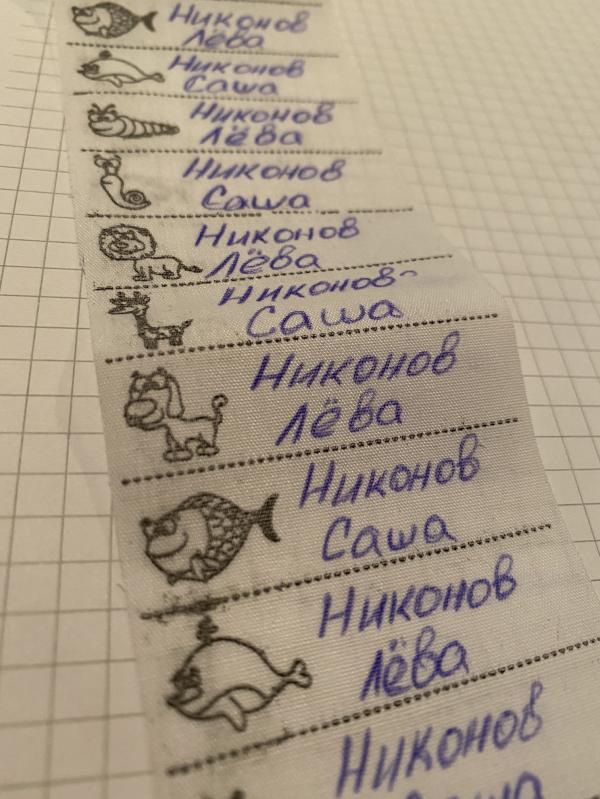 Никонов
Лёва
Никонов
Саша
Никонов
Лёва
Никонов
Саша
Никонов
Лёва
Никонов
Саша
Никонов
Лёва
Никонов
Саша
Никонов
Лёва
Никонов
Саша